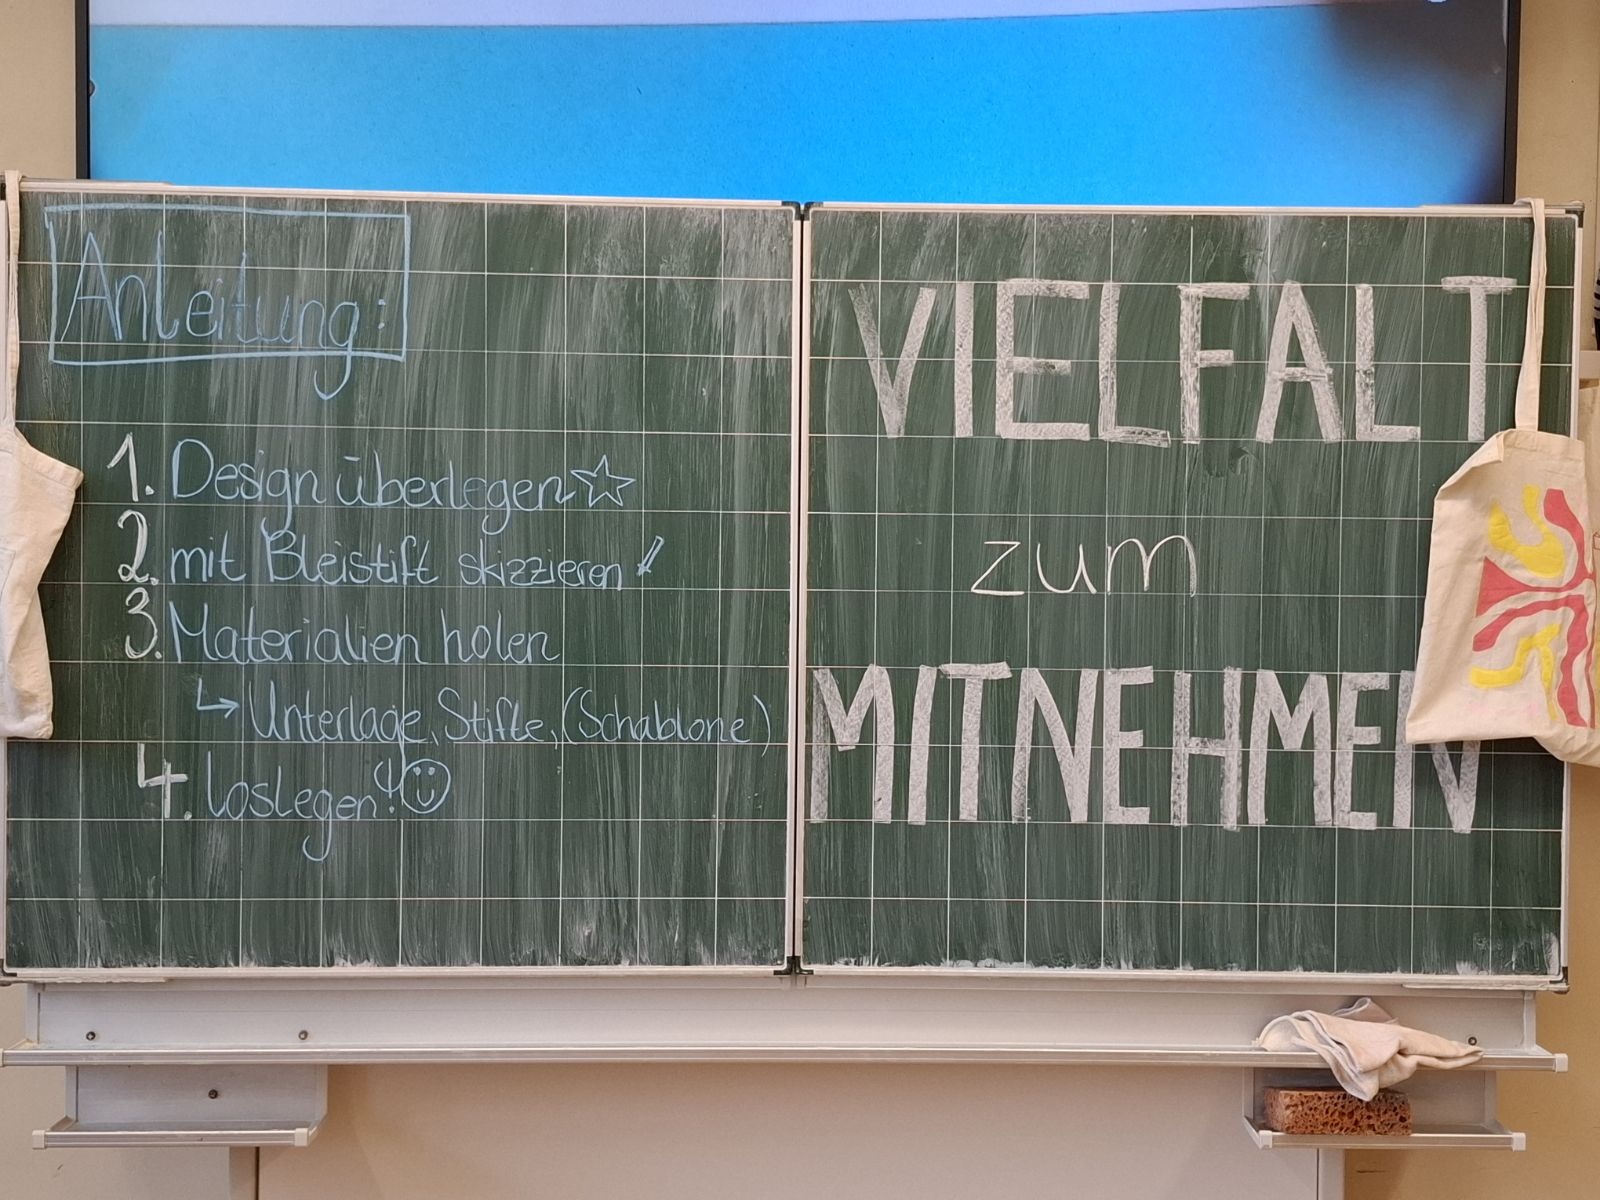 Anleitung:
1. Design überlegen
2. mit Bleistift skizzieren
3. Materialien holen
↳ Unterlage, Stifte, (Schablone)
4. loslegen!
VIELFALT
zum
MITNEHMEN